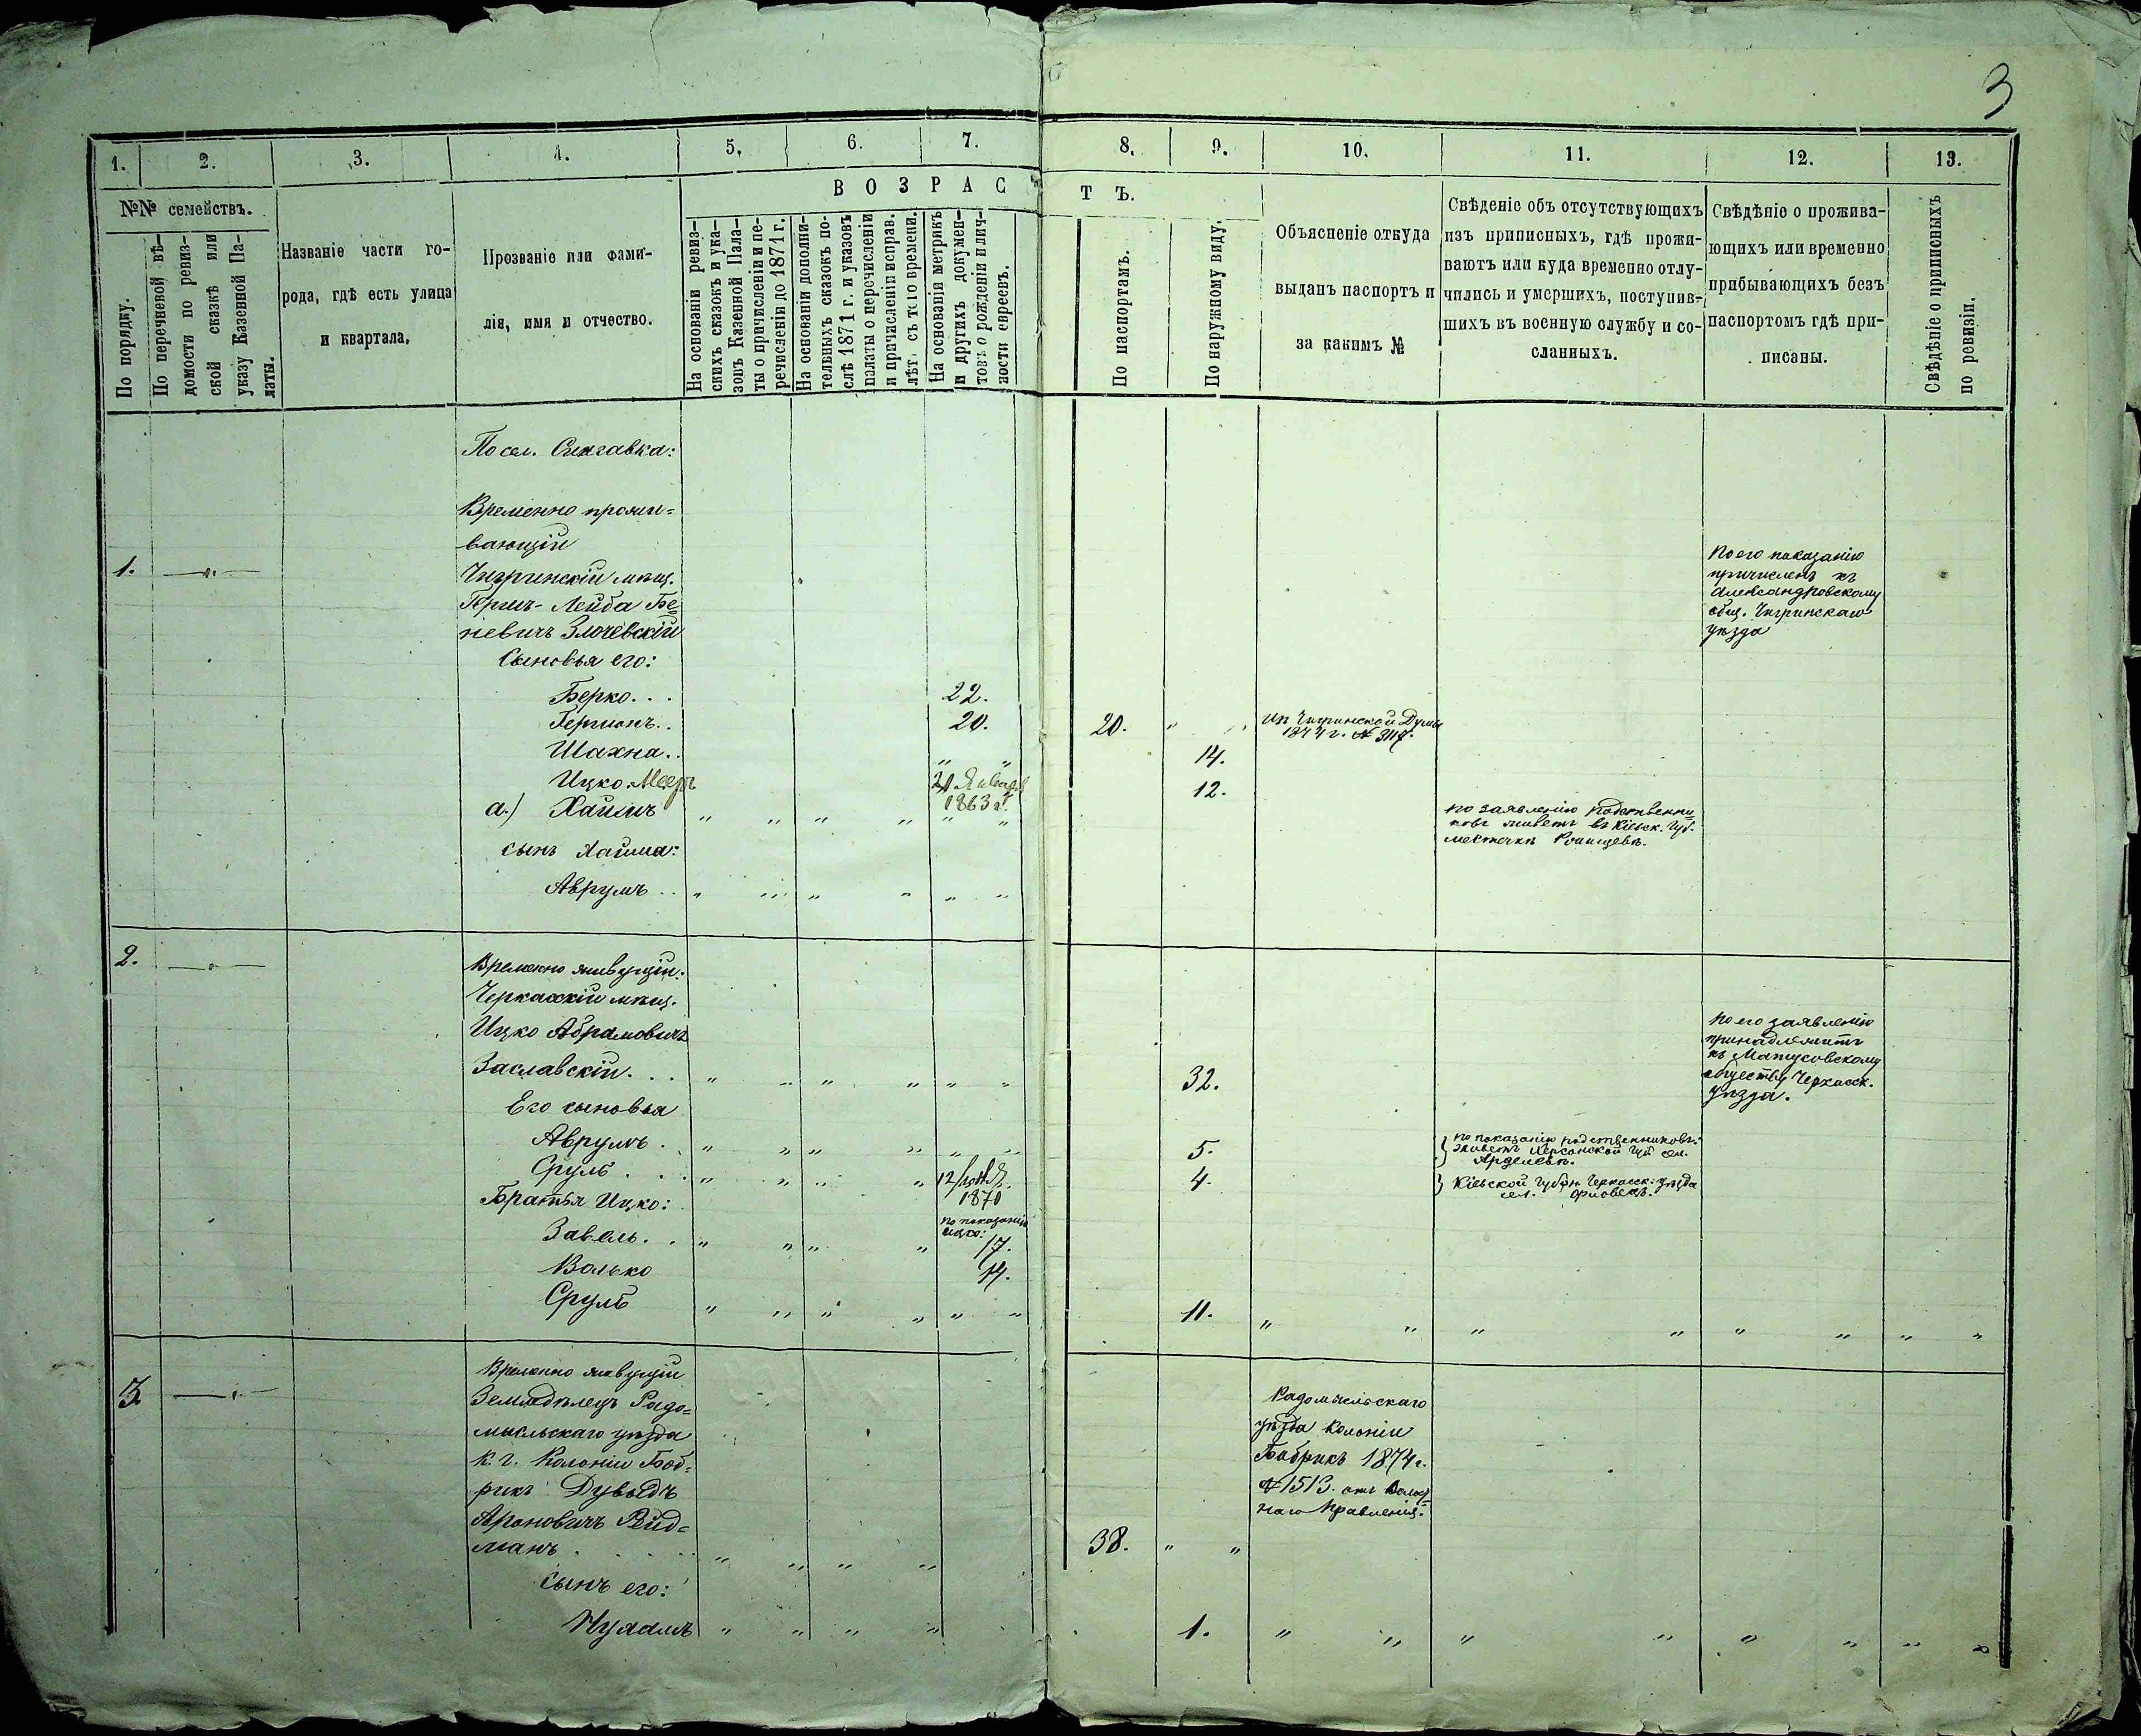 3
1. 2. 3. 4. 5. 6. 7. 8. 9. 10. 11. 12. 13.
№№ семействъ.
По порядку.
По перечневой вѣ-
домости по ревиз-
ской сказкѣ или
указу Казенной Па-
латы.
Названіе части го-
рода, гдѣ есть улица
и квартала,
Прозваніе или фами-
лія, имя и отчество.
ВОЗРАСТЪ.
На основаніи ревиз-
скихъ сказокъ и ука-
зовъ Казенной Пала-
ты о причисленіи и пе-
речисленіи до 1871 г.
На основаніи дополни-
тельныхъ сказокъ по-
слѣ 1871 г. и указовъ
палаты о перечисленіи
и причисленіи исправ.
лѣт. съ того времени.
На основаніи метрикъ
и другихъ докумен-
товъ о рожденіи и лич-
ности евреевъ.
По паспортамъ.
По наружному виду.
Объясненіе откуда
выданъ паспортъ и
за какимъ №
Свѣденіе объ отсутствующихъ
изъ приписныхъ, гдѣ прожи-
ваютъ или куда временно отлу-
чились и умершихъ, поступив-
шихъ въ военную службу и со-
сланныхъ.
Свѣдѣніе о прожива-
ющихъ или временно
прибывающихъ безъ
паспортомъ гдѣ при-
писаны.
Свѣдѣніе о приписныхъ
по ревизіи.
Посел.
Временно прожи=
вающій
1. Чигринскій мѣщ.
Гершъ-Лейба Бе=
невичъ Злочевскій
По его показанію
причисленъ къ
Александровскому
общ. Чигринскаго
уѣзда
Сыновья его:
Берко... 22.
20. 20. " "
Изъ Чигринской Думы
Шахна.. " " 14.
Ицко Меер 21 Января 12.
1863 г.
а.) Хаимъ " " " " " "
по заявленію родственни
ковъ живетъ въ Кіевск. Губ.
местечкѣ
сынъ Хаима:
Аврумъ.. " " " " " "
2. Временно живущій:
Черкасскій мѣщ.
Ицко Абрамовичъ
Заславскій... " " " " " " 32.
По его заявленію
принадлежитъ
къ Матусовскому
обществу Черкасск.
уѣзда.
Его сыновья
Аврумъ. " " " " " " 5.
по показанію родственниковъ
живетъ Херсонской Губ сел.
Сруль... " " " " 12 1870 4.
Кіевской Губрн Черкасск. уѣзда
сел.
Братья Ицко:
по показанію
Ицко:
Завель.. " " " " 17.
Волько 14.
Сруль " " " " " " 11. " " " " " " " "
3. Временно живущій
Земледѣлецъ Радо=
мысльскаго уѣзда
К. г. Колоніи Боб=
рикъ Дувыдъ
Ароновичъ Рейд=
манъ. " " " " 38. " "
Радомысльскаго
уѣзда Колоніи
Бобрикъ 1874 г.
№ 1513. отъ Волост
наго Правленія.
Сынъ его:
" " " " 1. " " " " " " " "